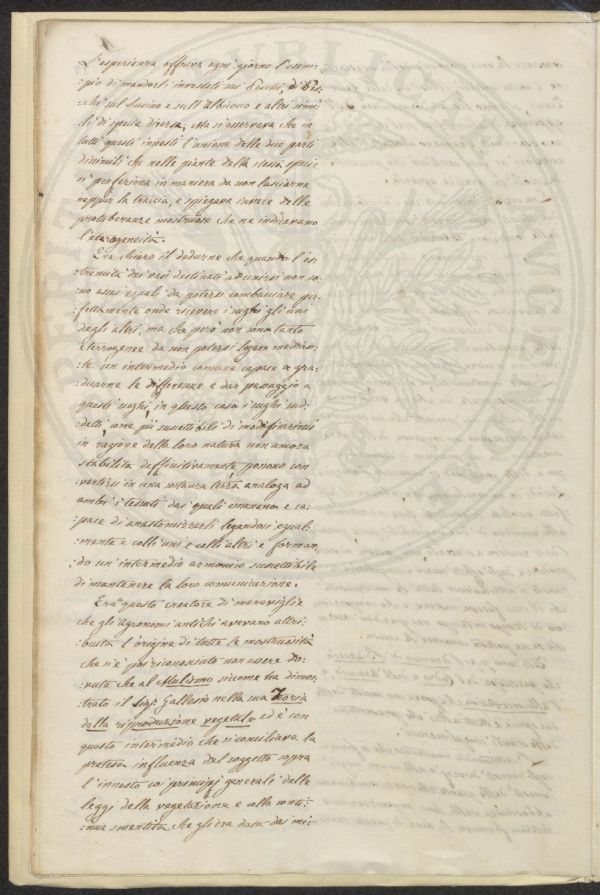 L'esperienza offriva ogni giorno l'esem:
:pio di mandorli innestati sui Peschi, di Pes:
:chi sul Susino e sull'Albicoco e altri simi:
:li di specie diversa, Ma s'osservava che in
tutti questi innesti l'unione delle due parti
dissimili che nelle piante della stessa specie
si perfeziona in maniera da non lasciarne
neppur la traccia, e spiegava invece delle
protuberanze mostruose che ne indicavano
l'eterogeneità.
Era chiaro il dedurne che quando l'es:
:tremità dei vasi destinati ad unirsi non so:
:no assai eguali da potersi combaciare per:
:fettamente onde ricevere i sughi gli uni
degli altri, ma che però non sono tanto
eterrogenee da non potersi legare median:
:te un intermedio comune capace a gra:
:duarne le differenze e dar passaggio a
questi sughi, in questo caso i sughi sud:
:detti, come più suscettibili di modificazioni
in ragione della loro natura non ancora
stabilita deffinitivamente possono con
vertirsi in una sostanza terza analoga ad
ambi i tessuti dai quali emanano e ca:
:pace di anastomizzarli legandosi egual:
:mente e colli uni e colli altri e forman:
:do un intermedio armonico suscettibile
di mantenere la loro comunicazione.
Era questo creatore di meraviglie
che gli agronomi antichi avevano attri:
:buita l'origine di tutte le mostruosità
che si è poi riconosciuto non essere do:
:vuta che al Mulismo siccome ha dimos:
:trato il Sigr Gallesio nella sua Teoria
della riproduzione vegetale ed è con
questo intermedio che si conciliava la
pretesa influenza del soggetto sopra
l'innesto coi principj generali delle
leggi della vegetazione e colla conti:
:nua smentita che gli era data dai mi: